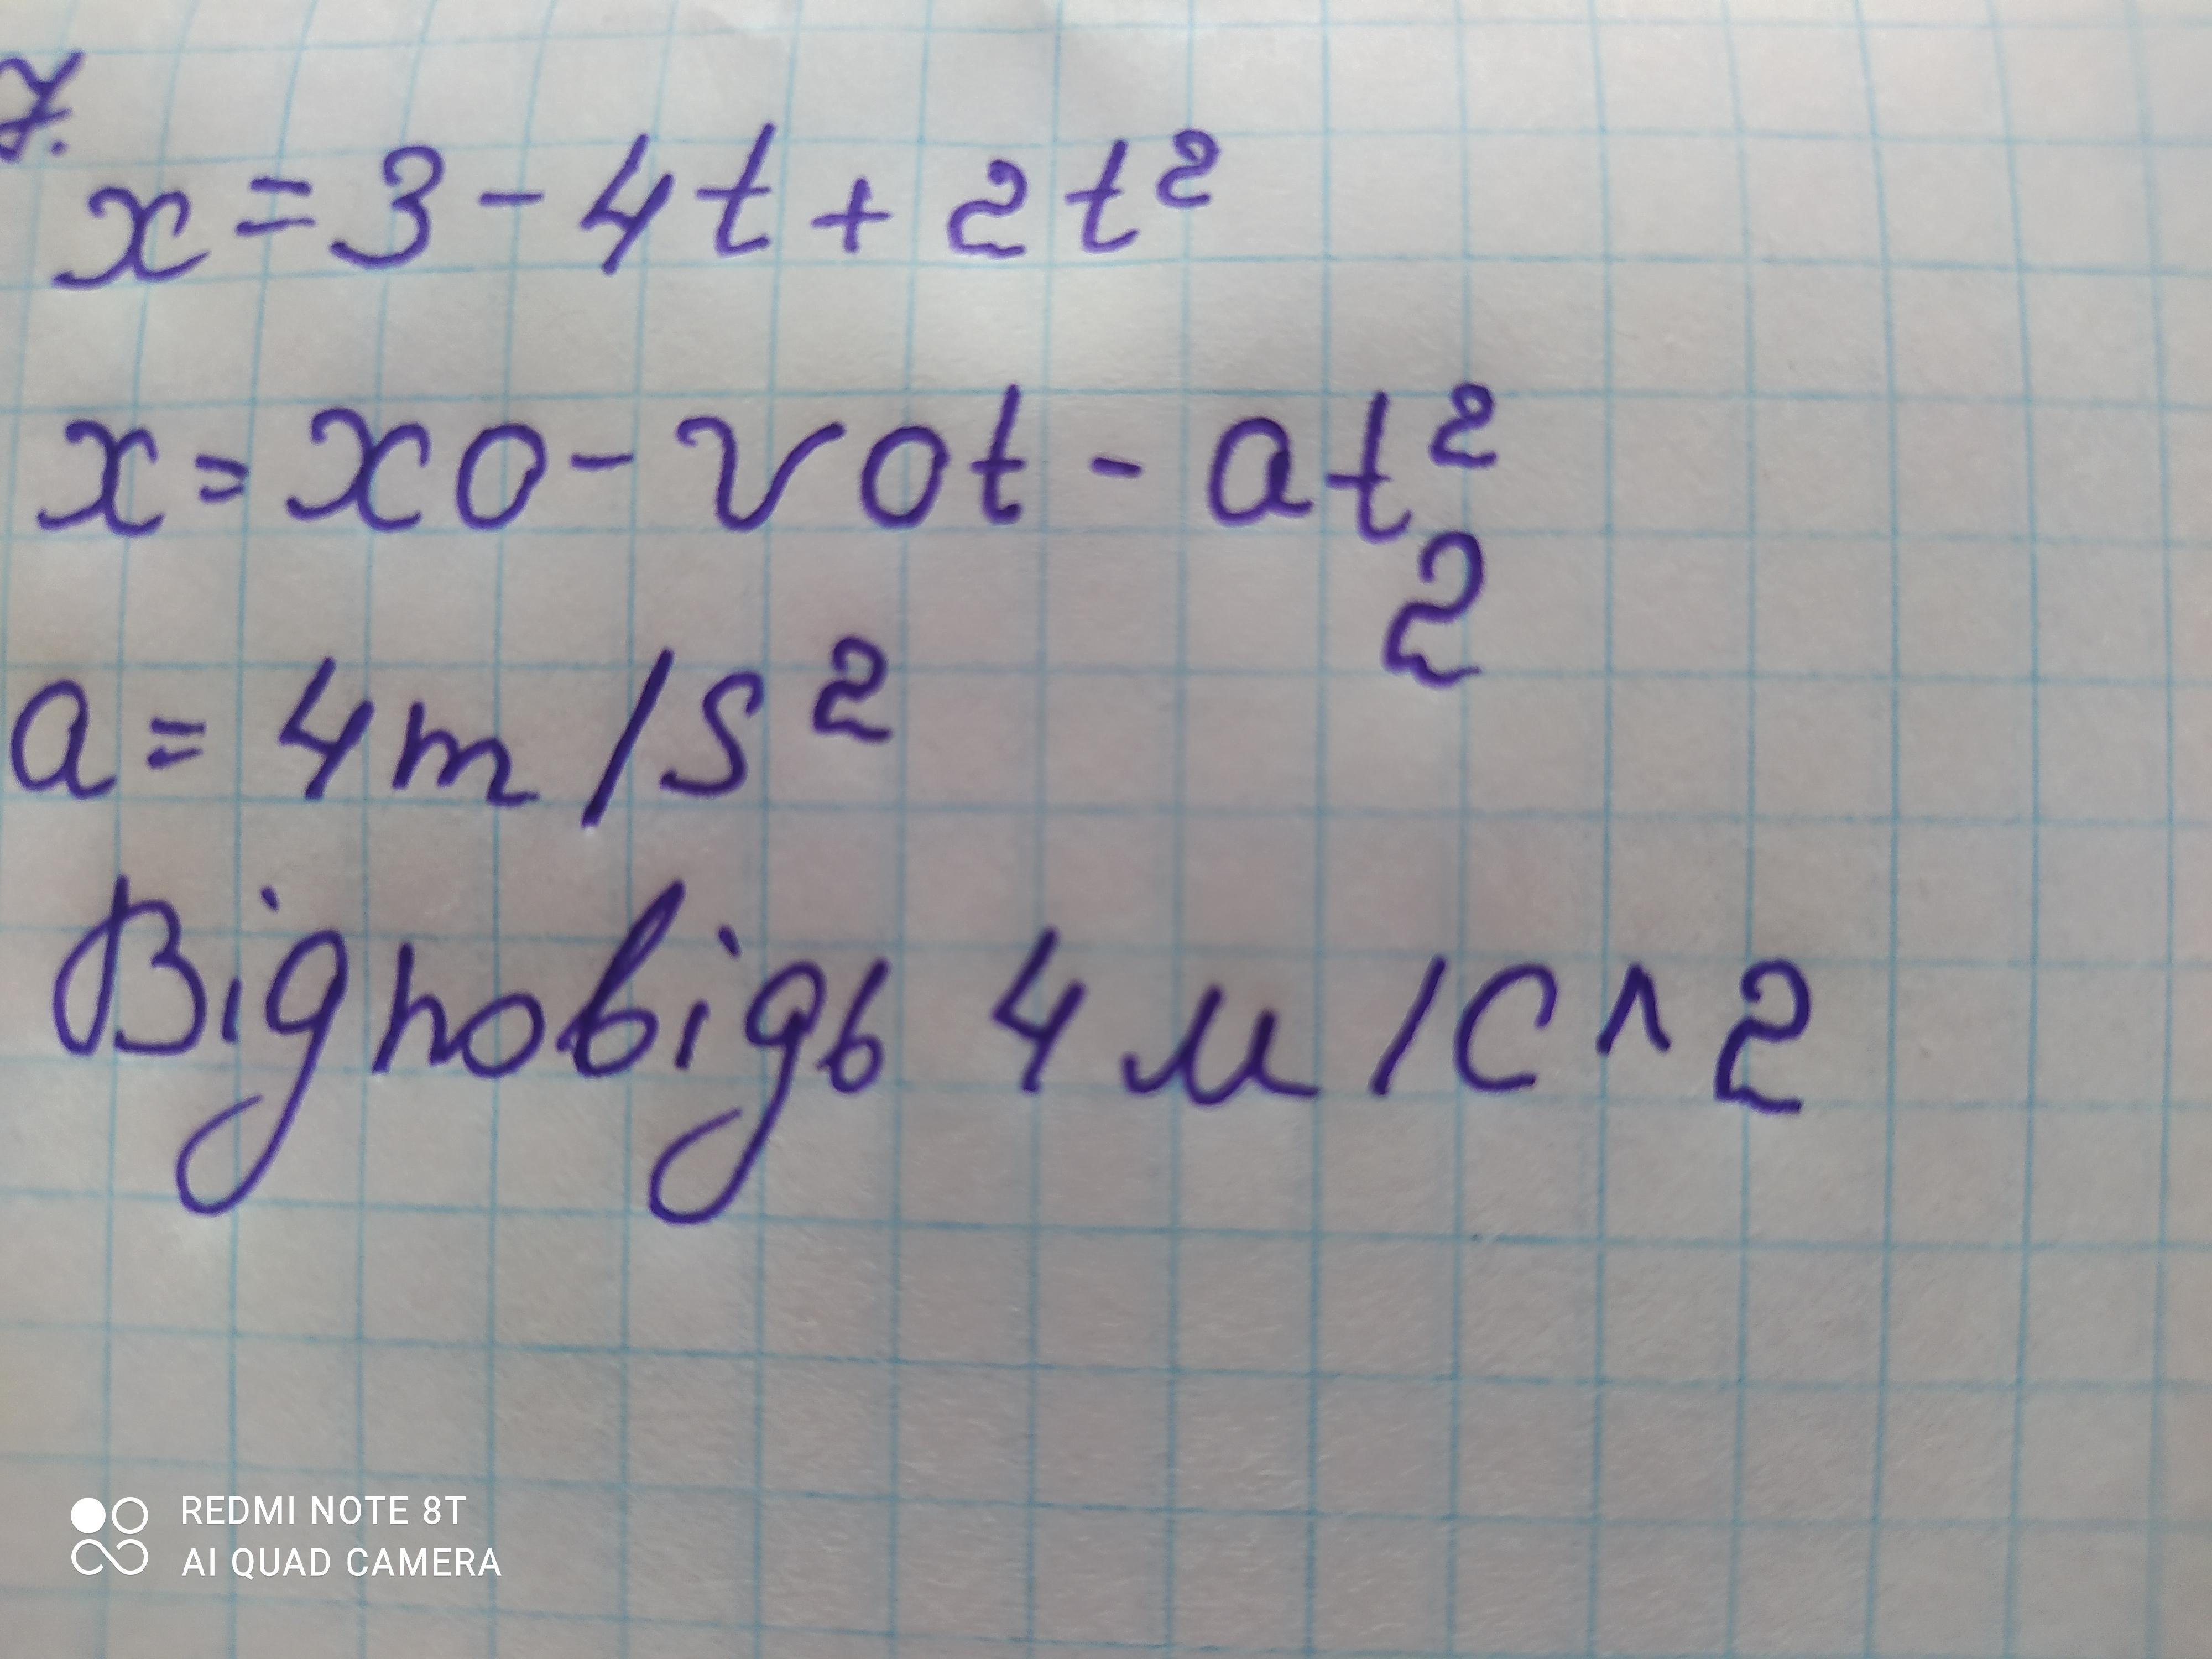 7.
x = 3 - 4t + 2t²
x = xo - vot - at²
2
a = 4m/s²
Відповідь 4 м/с^2
REDMI NOTE 8T
AI QUAD CAMERA